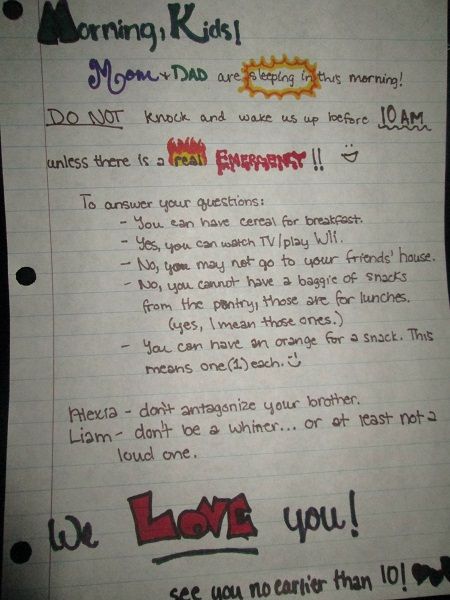 Morning, Kids!
Mom + DAD are sleeping in this morning!
DO NOT knock and wake us up before 10 AM
unless there is a real EMERGENCY!!
To answer your questions:
- You can have cereal for breakfast.
- Yes, you can watch TV/play Wii.
- No, you may not go to your friends' house.
- No, you cannot have a baggie of snacks
from the pantry, those are for lunches.
(yes, I mean those ones.)
- You can have an orange for a snack. This
means one (1) each.
Alexia - don't antagonize your brother.
Liam - don't be a whiner... or at least not a
loud one.
We LOVE you!
see you no earlier than 10!